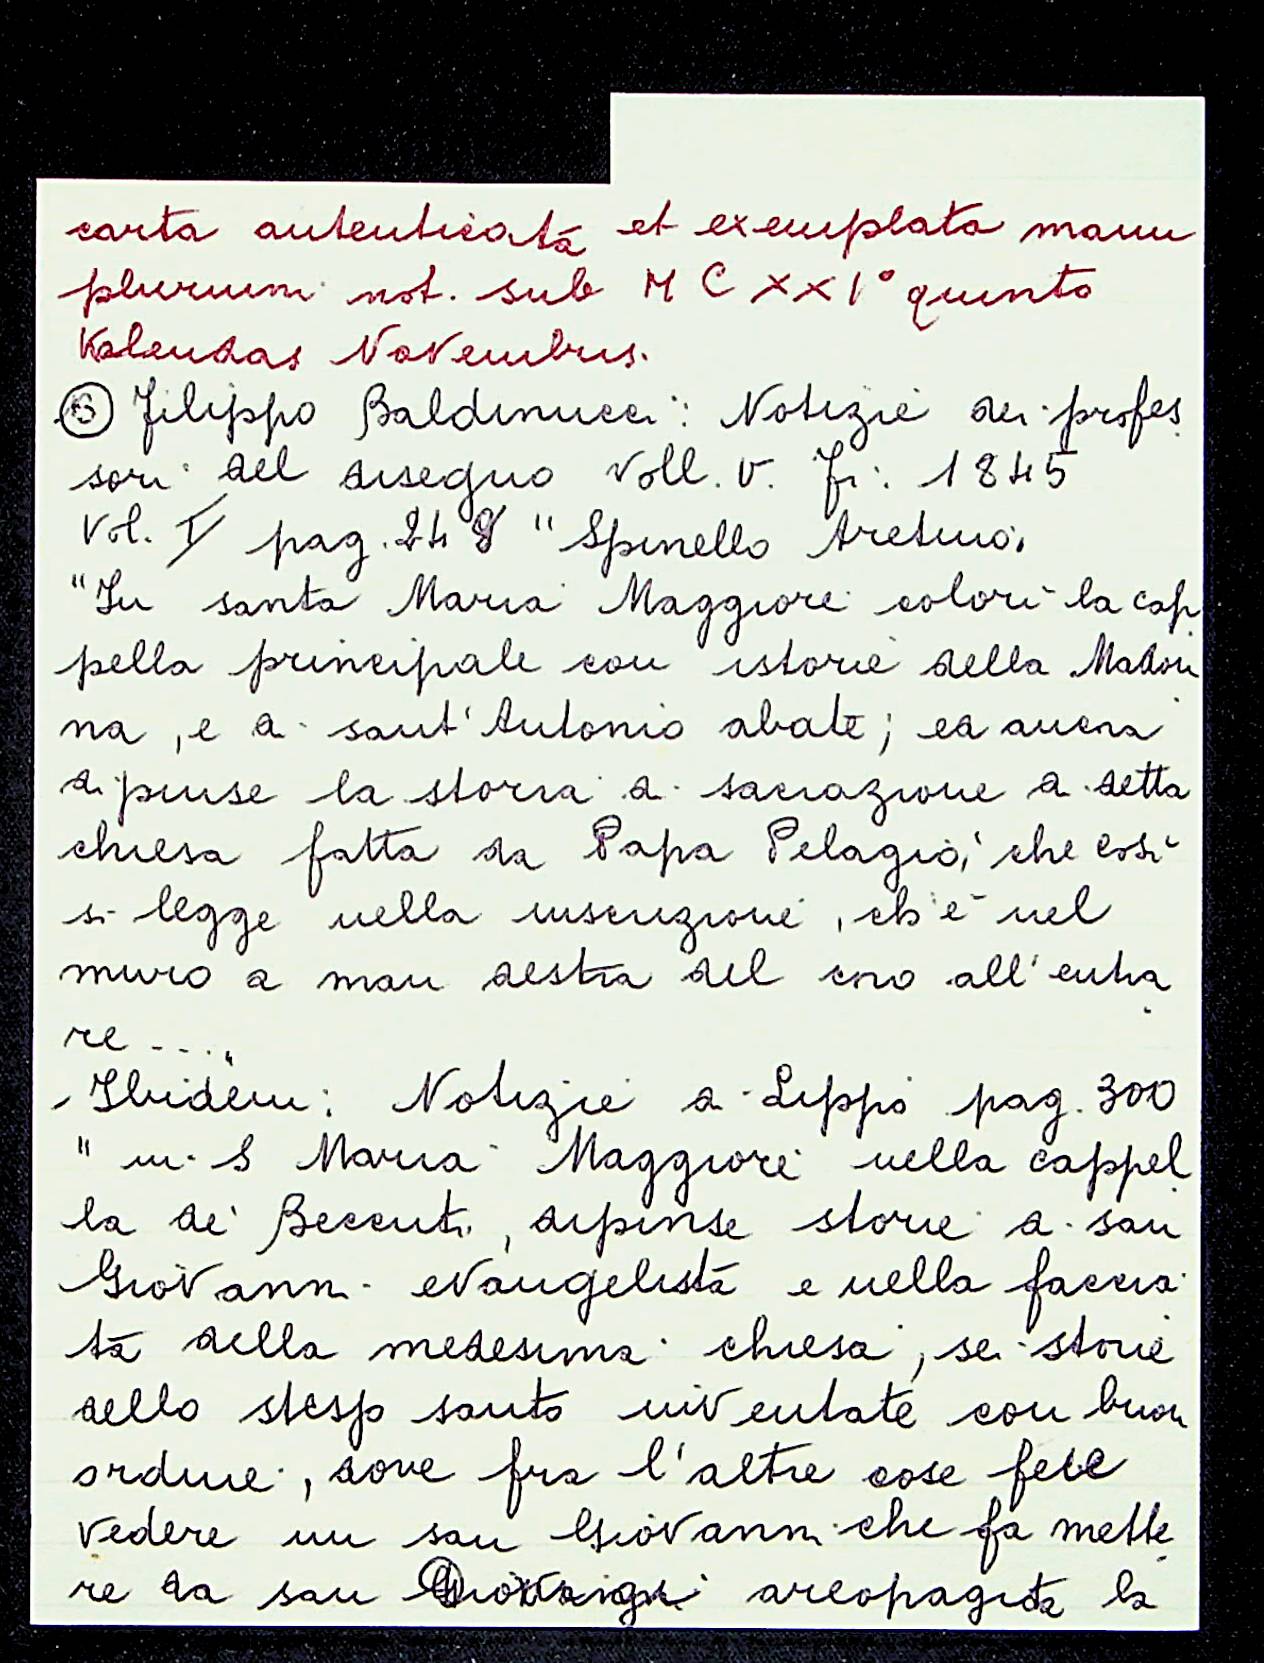 carta autenticata et exemplata manu
plurium not. sub M C XXI° quinto
Kalendas Novembris.
Filippo Baldinucci: Notizie dei profes
sori del disegno Voll. V. Fi: 1845
Vol. I pag. 248 "Spinello Aretino:
"In santa Maria Maggiore colorì la cap
pella principale con istorie della Madon
na, e di sant'Antonio abate; ed ancora
dipinse la storia di sacrazione di detta
chiesa fatta da Papa Pelagio, che così
si legge nella inscrizione, ch'è nel
muro a man destra del coro all'entra
re ....
Ibidem: Notizie di Lippo pag. 300
" in S Maria Maggiore nella cappel
la de' Beccuti, dipinse storie di san
Giovanni evangelista e nella faccia
ta della medesima chiesa, sei storie
dello stesso santo inventate con buon
ordine, dove fra l'altre cose fece
vedere un san Giovanni che fa mette
re da san areopagita la